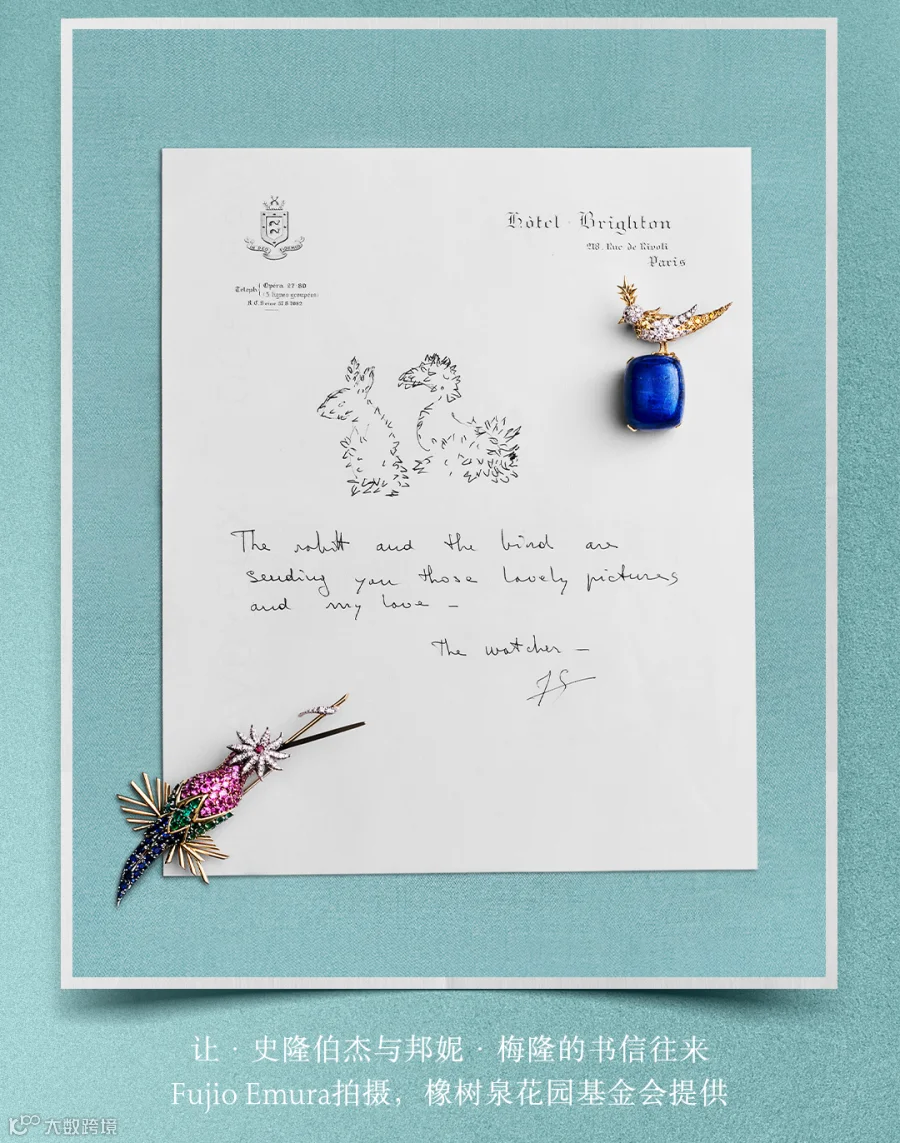 Hôtel · Brighton
218. Rue de Rivoli
Paris
Téleph Opéra 27-80
(5 lignes groupées)
The rabitt and the bird are
sending you those lovely pictures
and my love –
The watcher –
JS
让·史隆伯杰与邦妮·梅隆的书信往来
Fujio Emura拍摄，橡树泉花园基金会提供
大数跨境